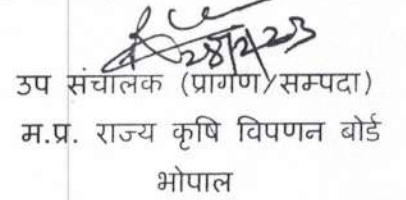 28/2/23
उप संचालक (प्रांगण/सम्पदा)
म.प्र. राज्य कृषि विपणन बोर्ड
भोपाल